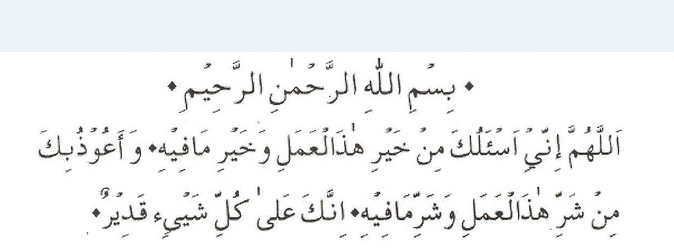 • بِسْمِ اللّٰهِ الرَّحْمٰنِ الرَّحِيْمِ •
اَللَّهُمَّ إِنِّيْ اَسْئَلُكَ مِنْ خَيْرِ هٰذَالْعَمَلِ وَخَيْرِ مَافِيْهِ• وَ أَعُوْذُبِكَ
مِنْ شَرِّ هٰذَالْعَمَلِ وَشَرِّمَافِيْهِ• اِنَّكَ عَلىٰ كُلِّ شَيْيءٍ قَدِيْرٌ•